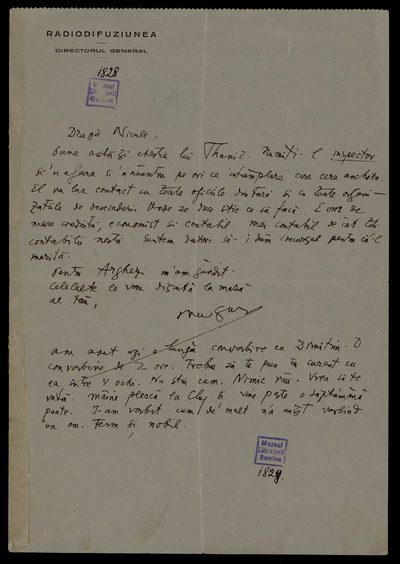 RADIODIFUZIUNEA
DIRECTORUL GENERAL
1828
Muzeul
Literaturii
Române
Dragă Nicule,
Pune astăzi chestia lui Numiți-l inspector
și 'n afara și înăuntru pe ori ce întâmplare care cere ancheta.
El va lua contact cu toate oficiile din țară și cu toate organi-
zațiile de Unde se duce știe ce să facă. E om de
mare credință, economist și contabil. Mai contabil de cât toți
contabilii noștri. Suntem datori să-i dăm concursul pentru că-l
merită.
Pentru Arghezi m'am gândit.
Celelalte le vom discuta la masă
al tău,
Am avut azi o lungă convorbire cu Dimitriu. O
convorbire de 2 ore. Trebue să te pun în curent cu
ea între 4 ochi. Nu știu cum. Nimic rău. Vrea să te
vadă. Mâine pleacă la Cluj și vine peste o săptămână
poate. I-am vorbit cum de mult n'a auzit vorbind
un om. Ferm și nobil.
Muzeul
Literaturii
Române
1829.